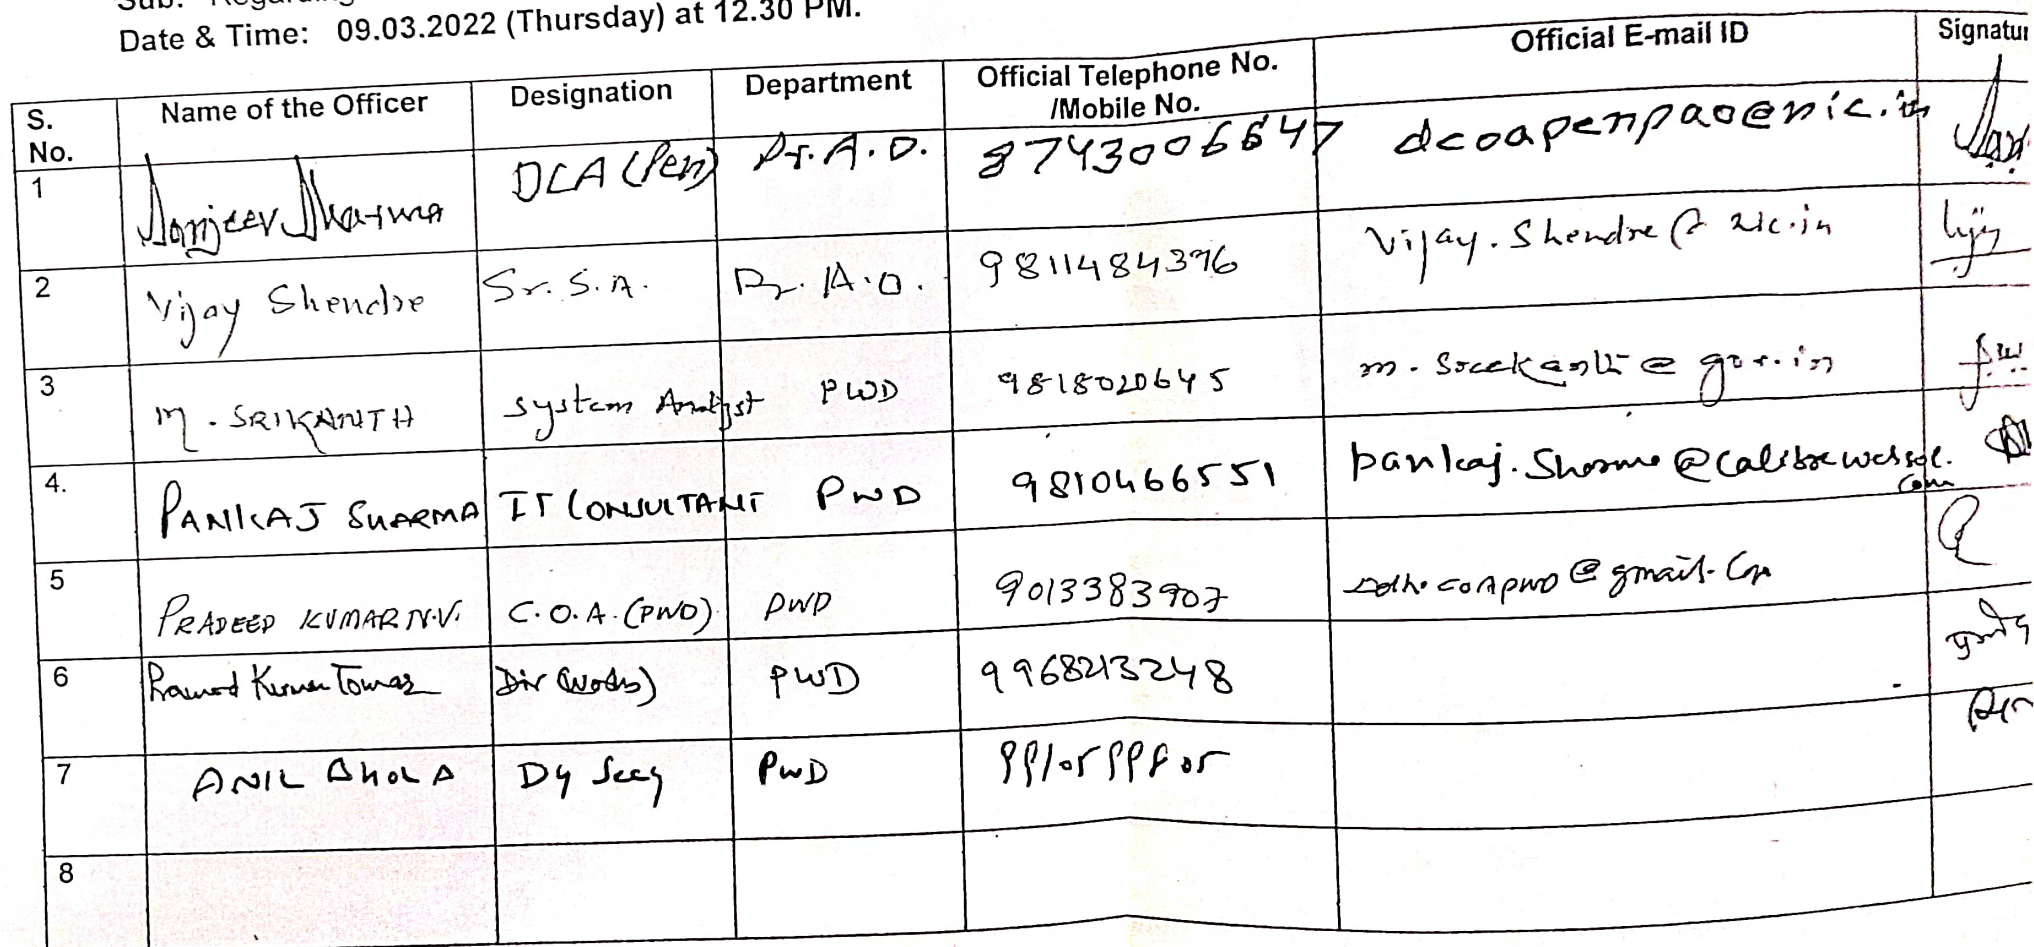 Date & Time: 09.03.2022 (Thursday) at 12.30 PM.
S. No. Name of the Officer Designation Department Official Telephone No. /Mobile No. Official E-mail ID Signatur
1 Sanjeev Sharma DCA (Pen) Pr. A.O. 8743006647 dcoapenpao@nic.in
2 Vijay Shendre Sr. S.A. Pr. A.O. 9811484396 Vijay.Shendre@nic.in
3 M. SRIKANTH System Analyst PWD 9818020645 m.sreekanth@gov.in
4. PANKAJ SHARMA IT CONSULTANT PWD 9810466551 pankaj.sharma@calibrewebsol.com
5 PRADEEP KUMAR N.V. C.O.A. (PWD) PWD 9013383907 @gmail.com
6 Pramod Kumar Tomar Dir (Works) PWD 9968213248
7 ANIL BHOLA Dy Secy PWD
8